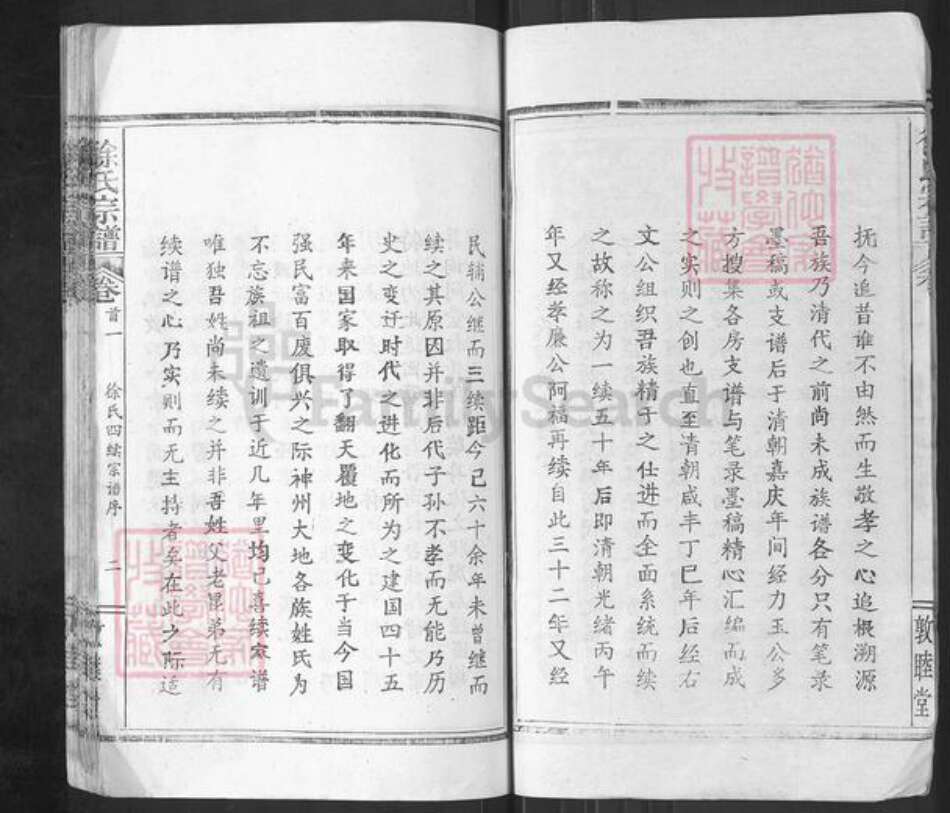 抚今追昔谁不由然而生敬孝之心追根溯源
吾族乃清代之前尚未成族谱各分只有笔录
墨稿或支谱后于清朝嘉庆年间经力玉公多
方搜集各房支谱与笔录墨稿精心汇编而成
之实则之创也直至清朝咸丰丁巳年后经右
文公组织吾族精于之仕进而全面系统而续
之故称之为一续五十年后即清朝光绪丙午
年又经孝廉公阿福再续自此三十二年又经
敦睦堂
民辅公继而三续距今已六十余年未曾继而
续之其原因并非后代子孙不孝而无能乃历
史之变迁时代之进化而所为之建国四十五
年来国家取得了翻天覆地之变化于当今国
强民富百废俱兴之际神州大地各族姓氏为
不忘族祖之遗训于近几年里均已喜续家谱
唯独吾姓尚未续之并非吾姓父老昆弟无有
续谱之心乃实则而无主持者矣在此之际适
徐氏宗谱 卷首一 徐氏四续宗谱序 二
FamilySearch